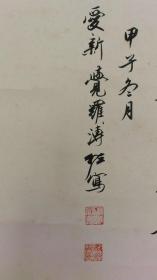 甲子冬月
愛新覺羅溥佐寫